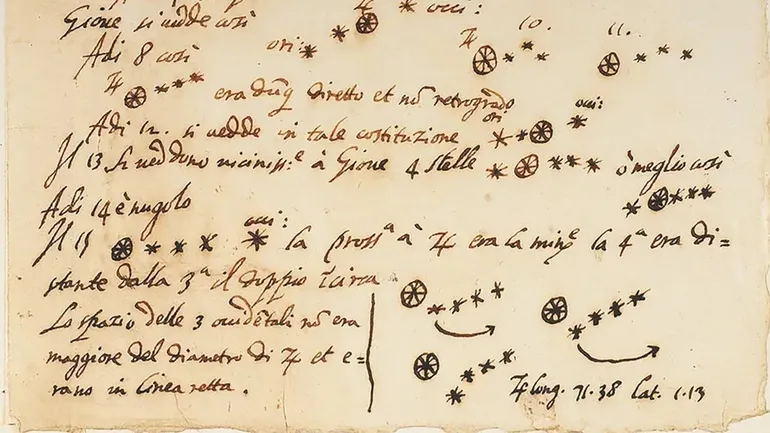 Gioue si uedde così
♃ * occi:
Adi 8 così
ori:
♃ 10. 11.
♃ era dũq̃ diretto et nõ retrogrado
Adi 12. si uedde in tale costituzione
ori occi:
Il 13 si ueddono uicinissᵉ à Gioue 4 stelle * ⊕ *** ò meglio così
Adi 14 è nugolo
Il 15 occi: la prossᵃ à ♃ era la minᵉ la 4ᵃ era di=
stante dalla 3ᵃ il doppio ĩcirca
Lo spazio delle 3 occidẽtali nõ era
maggiore del diametro di ♃ et e=
rano in linea retta.
♃ long. 71.38 lat. 1.13